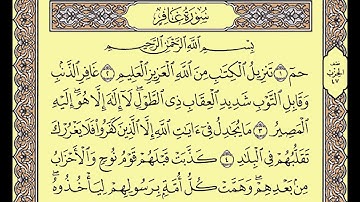 سُورَةُ غَافِرٍ
بِسْمِ اللَّهِ الرَّحْمَٰنِ الرَّحِيمِ
حمٓ ١ تَنزِيلُ الْكِتَٰبِ مِنَ اللَّهِ الْعَزِيزِ الْعَلِيمِ ٢ غَافِرِ الذَّنۢبِ
وَقَابِلِ التَّوْبِ شَدِيدِ الْعِقَابِ ذِي الطَّوْلِ لَآ إِلَٰهَ إِلَّا هُوَ إِلَيْهِ
الْمَصِيرُ ٣ مَا يُجَٰدِلُ فِيٓ ءَايَٰتِ اللَّهِ إِلَّا الَّذِينَ كَفَرُوا۟ فَلَا يَغْرُرْكَ
تَقَلُّبُهُمْ فِي الْبِلَٰدِ ٤ كَذَّبَتْ قَبْلَهُمْ قَوْمُ نُوحٍ وَالْأَحْزَابُ
مِنۢ بَعْدِهِمْ وَهَمَّتْ كُلُّ أُمَّةٍۭ بِرَسُولِهِمْ لِيَأْخُذُوهُ